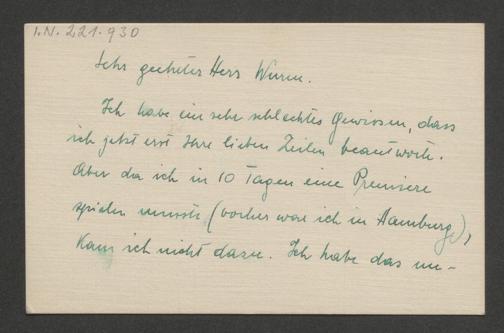 I.N. 221.930
Sehr geehrter Herr Wurm.
Ich habe ein sehr schlechtes Gewissen, dass
ich jetzt erst Ihre lieben Zeilen beantworte.
Aber da ich in 10 Tagen eine Premiere
spielen musste (vorher war ich in Hamburg),
kam ich nicht dazu. Ich habe das un-